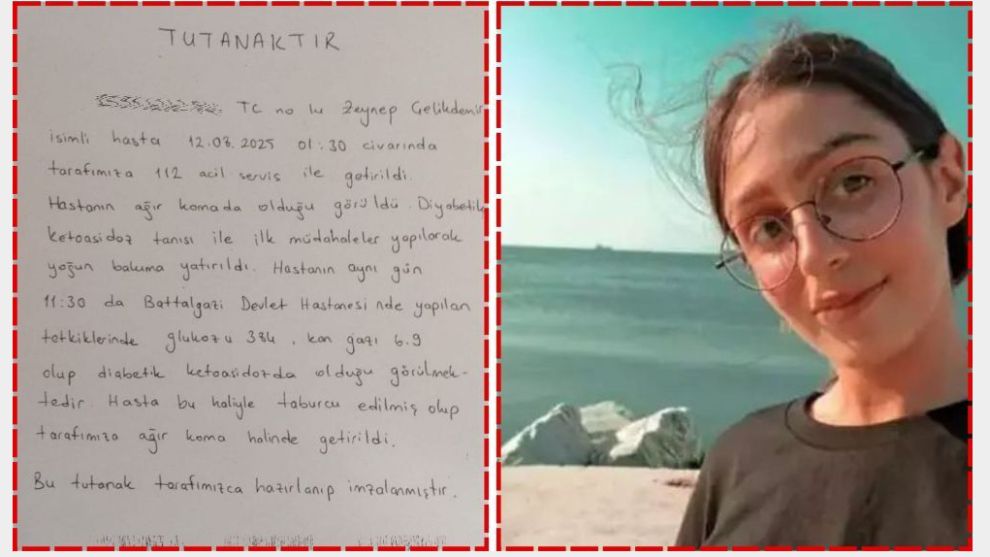 TUTANAKTIR
TC no lu Zeynep Gelikdemir
isimli hasta 12.08.2025 01:30 civarında
tarafımıza 112 acil servis ile getirildi.
Hastanın ağır komada olduğu görüldü. Diyabetik
ketoasidoz tanısı ile ilk müdahaleler yapılarak
yoğun bakıma yatırıldı. Hastanın aynı gün
11:30 da Battalgazi Devlet Hastanesi nde yapılan
tetkiklerinde glukozu 384, kan gazı 6.9
olup diabetik ketoasidozda olduğu görülmek-
tedir. Hasta bu haliyle taburcu edilmiş olup
tarafımıza ağır koma halinde getirildi.
Bu tutanak tarafımızca hazırlanıp imzalanmıştır.